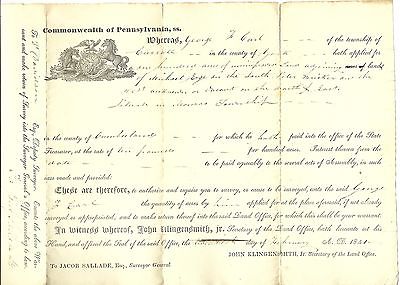 Commonwealth of Pennsylvania, ss.
Whereas, George F Earl of the township of
in the county of York hath applied for
one hundred acres of unimproved land adjoining lands of
Michael Ege on the South
on the
situate in Monroe Township
in the county of Cumberland for which he hath paid into the office of the State
Treasurer, at the rate of ten pounds per hundred acres. Interest thereon from the
date to be paid agreeably to the several acts of Assembly, in such
case made and provided:
These are therefore, to authorise and require you to survey, or cause to be surveyed, unto the said George
F Earl the quantity of acres by him applied for at the place aforesaid, if not already
surveyed or appropriated, and to make return thereof into the said Land Office, for which this shall be your warrant.
In witness whereof, John Klingensmith, jr. Secretary of the Land Office, hath hereunto set his
Hand, and affixed the Seal of the said Office, the day of February A. D. 1841
JOHN KLINGENSMITH, jr. Secretary of the Land Office.
To JACOB SALLADE, Esq., Surveyor General
Esq. Deputy Surveyor. Execute the above War-
rant and make return of Survey into the Surveyor General's Office, according to law.